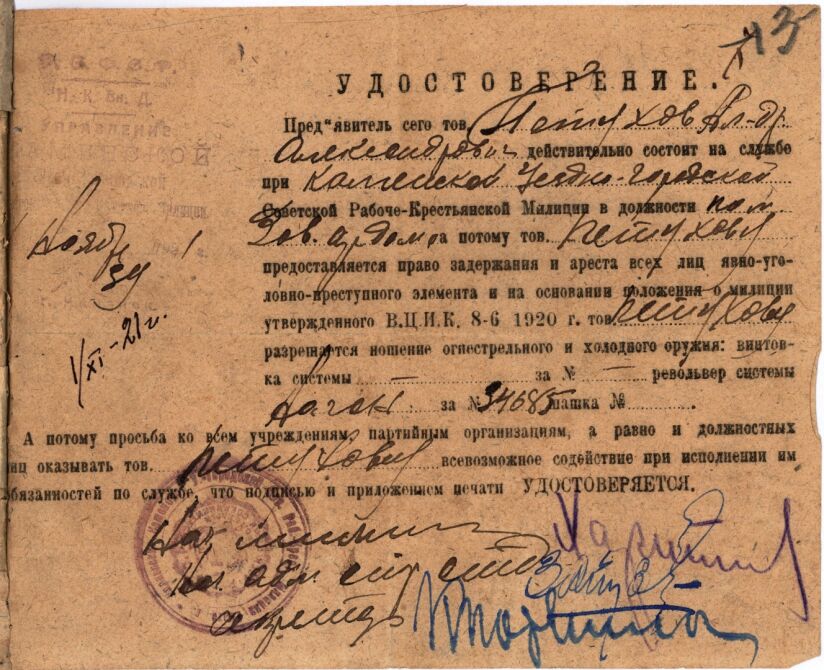 13
Р. С. Ф. С. Р.
Н. К. Вн. Д.
УПРАВЛЕНИЕ
УДОСТОВЕРЕНИЕ.
Пред"явитель сего тов. Петухов Ал-др
Александрович действительно состоит на службе
при Каменской Уездно-городской
Советской Рабоче-Крестьянской Милиции в должности пом
Зав. а потому тов. Петухову
предоставляется право задержания и ареста всех лиц явно-уго-
ловно-преступного элемента и на основании положения о милиции
утвержденного В.Ц.И.К. 8-6 1920 г. тов. Петухову
разрешается ношение огнестрельного и холодного оружия: винтов-
ка системы — за № — револьвер системы
Наган за № 34685 шашка №
Ноябр 1
39
1/XI-21 г.
А потому просьба ко всем учреждениям, партийным организациям, а равно и должностных
лиц оказывать тов. Петухову всевозможное содействие при исполнении им
обязанностей по службе, что подписью и приложением печати УДОСТОВЕРЯЕТСЯ.
Нач милиции
Нач адм
секретарь